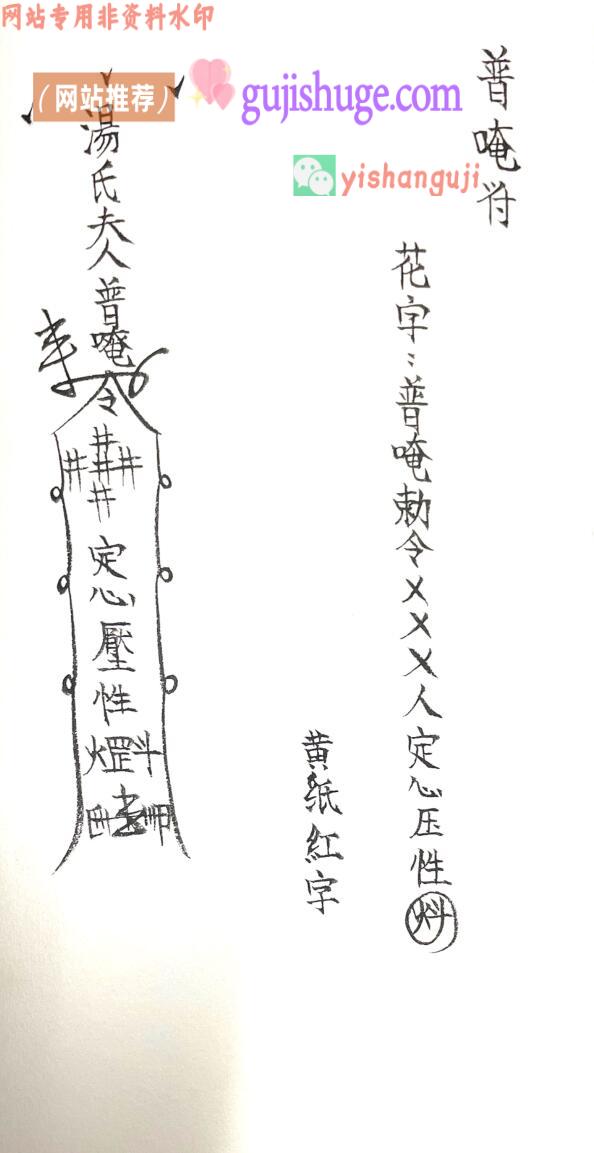 网站专用非资料水印
（网站推荐）
gujishuge.com
yishanguji
普唵符
花字：普唵勅令XXX人定心压性
黄纸紅字
湯氏夫人普唵
令
井
井井井
井
定心壓性